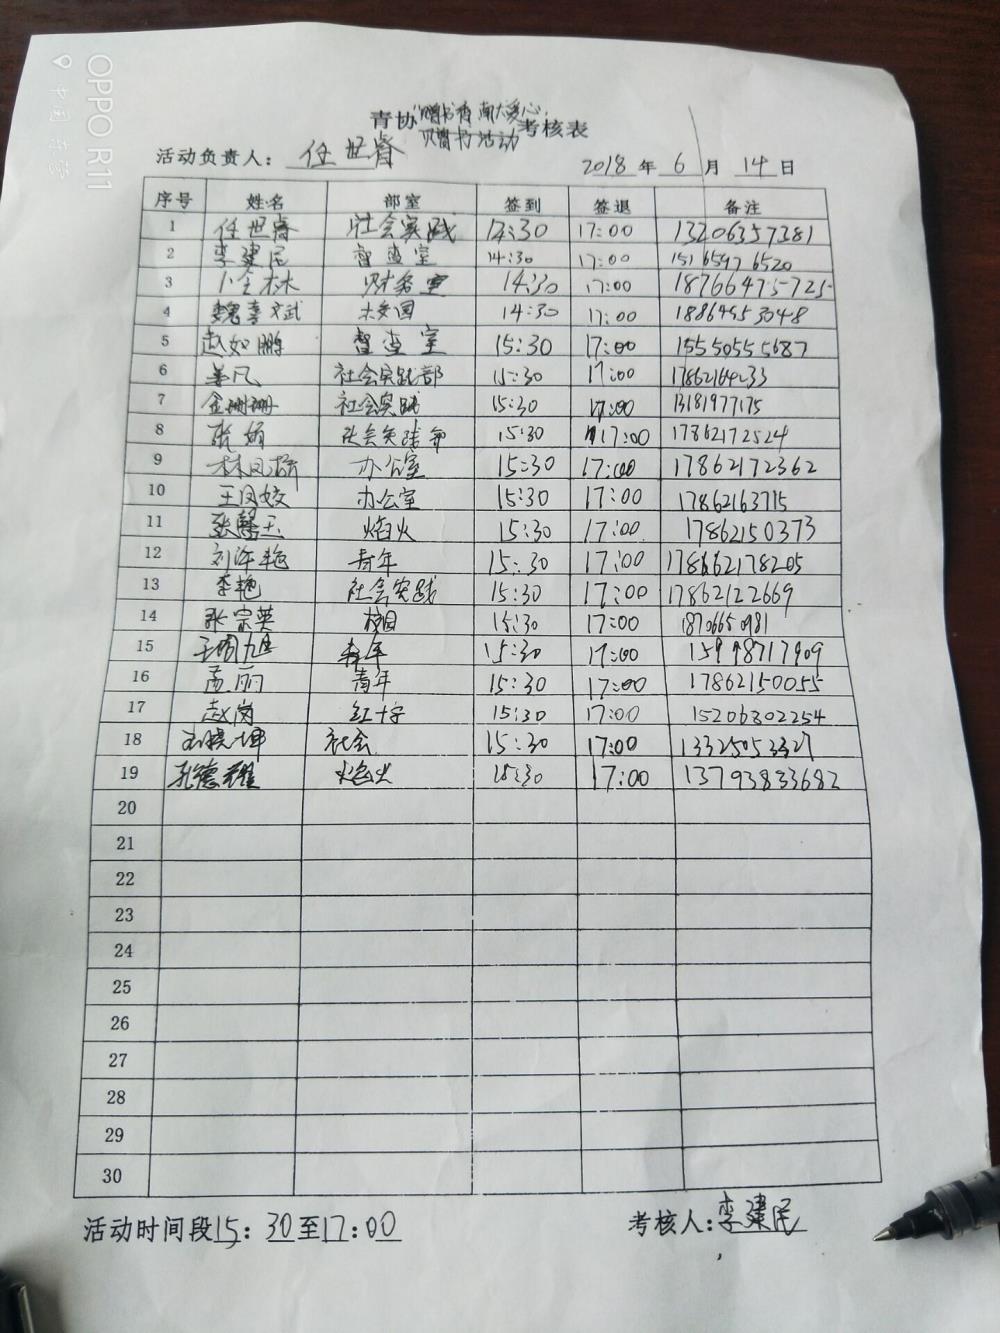 OPPO R11
中国·东营
青协"赠书香 献大爱心"考核表
赠书活动
活动负责人： 任世睿 2018 年 6 月 14 日
序号 姓名 部室 签到 签退 备注
1 任世睿 社会实践 14:30 17:00 13206357381
2 李建民 督查室 14:30 17:00 15165976520
3 卜全林 财务室 14:30 17:00 18766475725
4 魏喜斌 校园 14:30 17:00 18864553048
5 赵如鹏 督查室 15:30 17:00 15550555687
6 姜凡 社会实践部 15:30 17:00 17862164233
7 金珊珊 社会实践 15:30 17:00 13181977175
8 张娟 社会实践部 15:30 17:00 17862172524
9 林凤娇 办公室 15:30 17:00 17862172362
10 王凤姣 办公室 15:30 17:00 17862163715
11 张馨玉 焰火 15:30 17:00 17862150373
12 刘泽艳 青年 15:30 17:00 17862178205
13 李艳 社会实践 15:30 17:00 17862122669
14 张宗英 校园 15:30 17:00 18706650981
15 青年 15:30 17:00 15998717909
16 孟丽 青年 15:30 17:00 17862150055
17 赵岗 红十字 15:30 17:00 15206802254
18 社会 15:30 17:00 13325053327
19 孔德耀 焰火 15:30 17:00 13793833682
20
21
22
23
24
25
26
27
28
29
30
活动时间段15：30至17：00 考核人：李建民